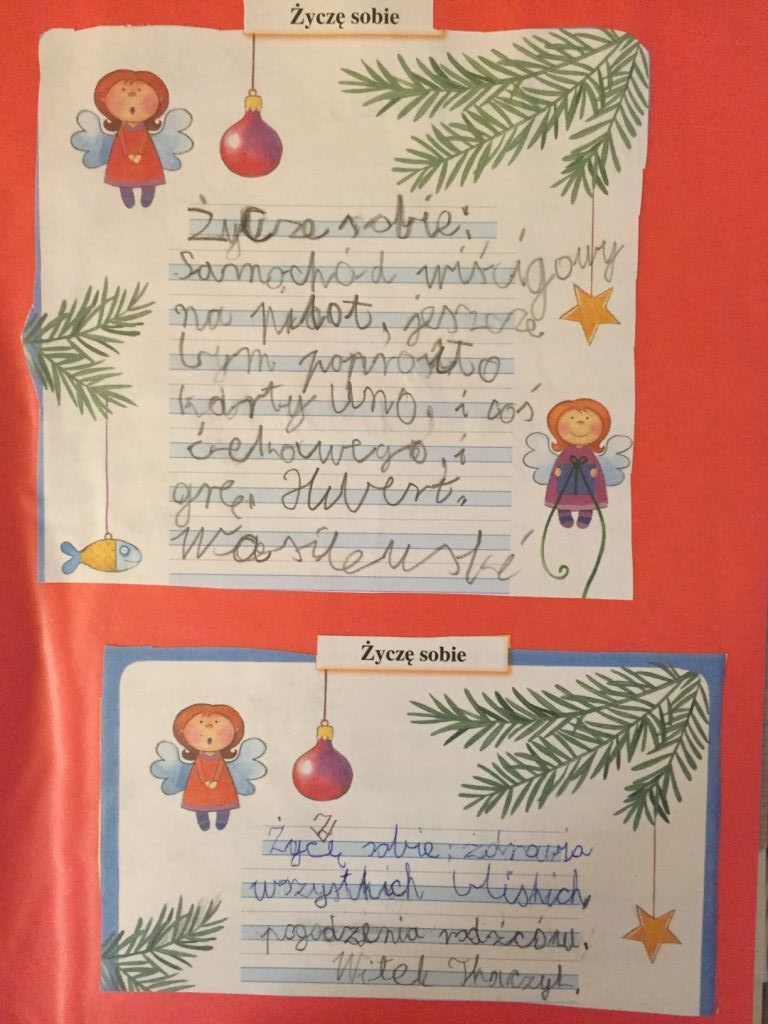 Życzę sobie
Życze sobie:
Samochód wiścigowy
na pilot, jeszcze
bym poprosiło
karty Uno, i coś
ciekawego, i
grę. Hubert.
Wasilewski
Życzę sobie
Życzę sobie: zdrowia
wszystkich bliskich,
pogodzenia rodziców.
Witek